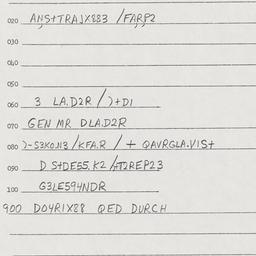 020 ANS+TRAJX883 /FARP2
030
040
050
060 3 LA.D2R / )+D1
070 GEN MR DLA.D2R
080 )-S3K0.113 /KFA.R / + QAVRGLA.VIS+
090 D S+DE55.K2 /+T2REP23
100 G3LE594NDR
900 D04R1X88 QED DURCH